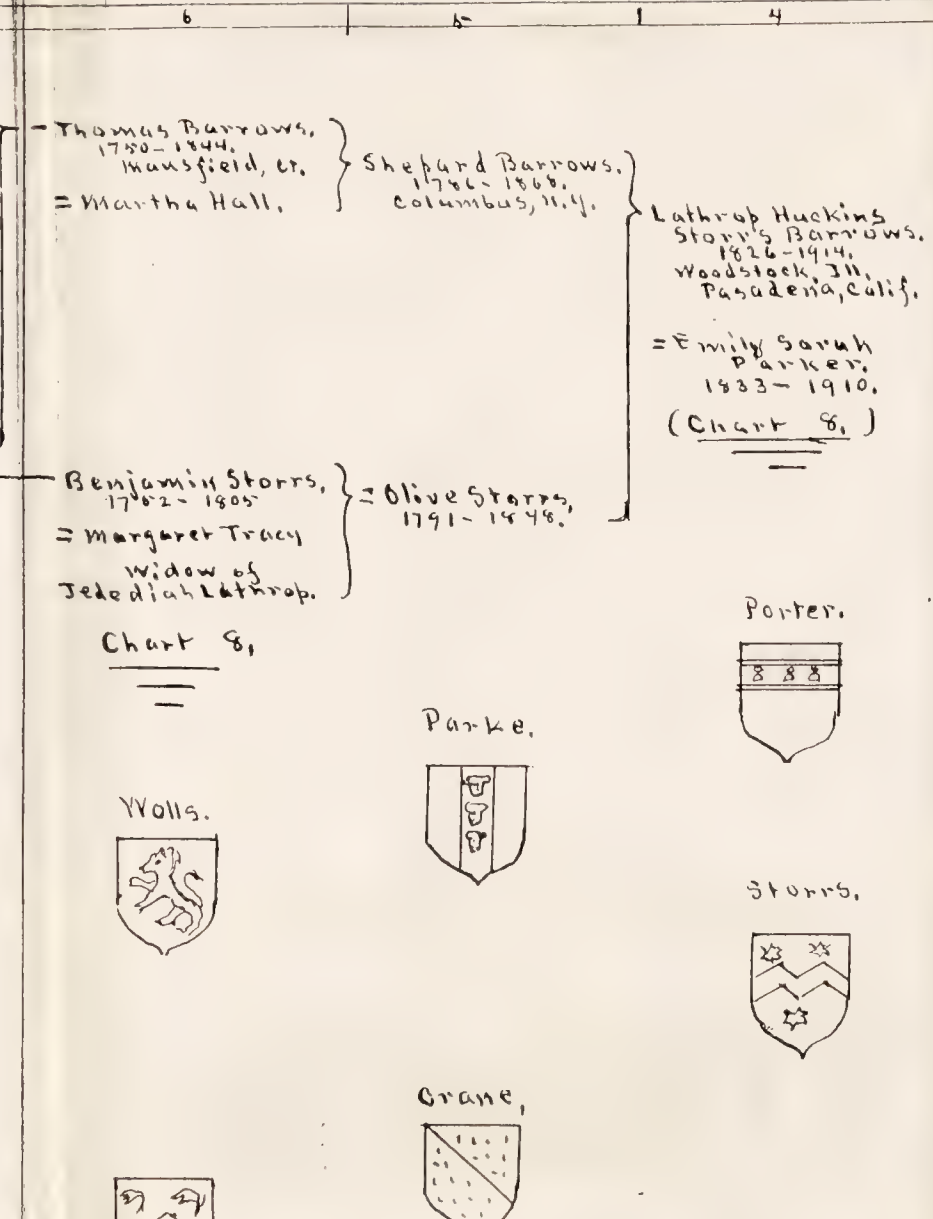 6 5 4
Thomas Barrows.
1750-1844.
Mansfield, Ct.
= Martha Hall.
Shepard Barrows.
1786-1868.
Columbus, N.Y.
Lathrop Huckins
Storrs Barrows.
1826-1914.
Woodstock, Ill.
Pasadena, Calif.
= Emily Sarah
Parker.
1833-1910.
(Chart 8.)
Benjamin Storrs.
1752-1805
= Margaret Tracy
Widow of
Jedediah Lathrop.
Chart 8,
= Olive Storrs,
1791-1848.
Porter.
Parke.
Wolls.
Storrs.
Crane,